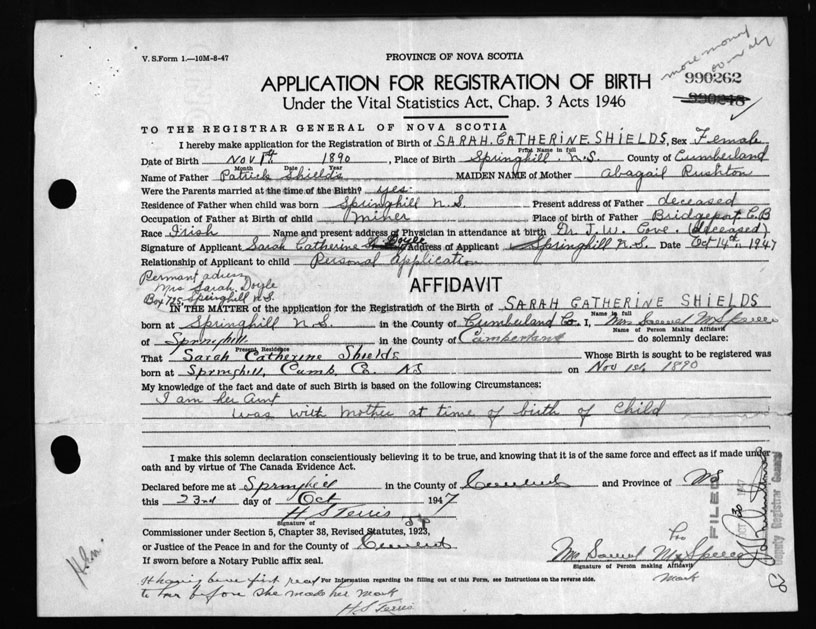 more money
on
V. S. Form 1.—10M-8-47
PROVINCE OF NOVA SCOTIA
990262
APPLICATION FOR REGISTRATION OF BIRTH
Under the Vital Statistics Act, Chap. 3 Acts 1946
TO THE REGISTRAR GENERAL OF NOVA SCOTIA
I hereby make application for the Registration of Birth of SARAH. CATHERINE SHIELDS, Sex Female
Print Name in full
Date of Birth Nov 1st 1890, Place of Birth Springhill N.S. County of Cumberland
Month Date Year
Name of Father Patrick Shields MAIDEN NAME of Mother Abagail Rushton
Were the Parents married at the time of the Birth? yes.
Residence of Father when child was born Springhill N.S. Present address of Father deceased
Occupation of Father at Birth of child Miner Place of birth of Father Bridgeport C.B
Race Irish Name and present address of Physician in attendance at birth Dr J. W. Cove. (deceased)
Signature of Applicant Sarah Catherine Doyle Address of Applicant Springhill N.S. Date Oct 14th, 1947
Relationship of Applicant to child Personal Application
Permant adress
Mrs Sarah Doyle
Box 725, Springhill N.S.
AFFIDAVIT
IN THE MATTER of the application for the Registration of the Birth of SARAH CATHERINE SHIELDS
Name in full
born at Springhill N.S. in the County of Cumberland Co. I, Mrs Samuel
Name of Person Making Affidavit
of Springhill in the County of Cumberland do solemnly declare:
Present Residence
That Sarah Catherine Shields Whose Birth is sought to be registered was
born at Springhill, Cumb, Co. N.S on Nov 1st 1890
My knowledge of the fact and date of such Birth is based on the following Circumstances:
I am her Aunt
was with mother at time of birth of child
I make this solemn declaration conscientiously believing it to be true, and knowing that it is of the same force and effect as if made under
oath and by virtue of The Canada Evidence Act.
Declared before me at Springhill in the County of and Province of NS
this 23rd day of Oct 1947
H S Terris
Signature of
Commissioner under Section 5, Chapter 38, Revised Statutes, 1923,
or Justice of the Peace in and for the County of
If sworn before a Notary Public affix seal.
her
Mrs. Samuel
Signature of Person making Affidavit
mark
FILED
OCT 30 1947
Deputy Registrar General
For Information regarding the filling out of this Form, see Instructions on the reverse side.
It having been first read
to her before she made her mark
H. S Terris